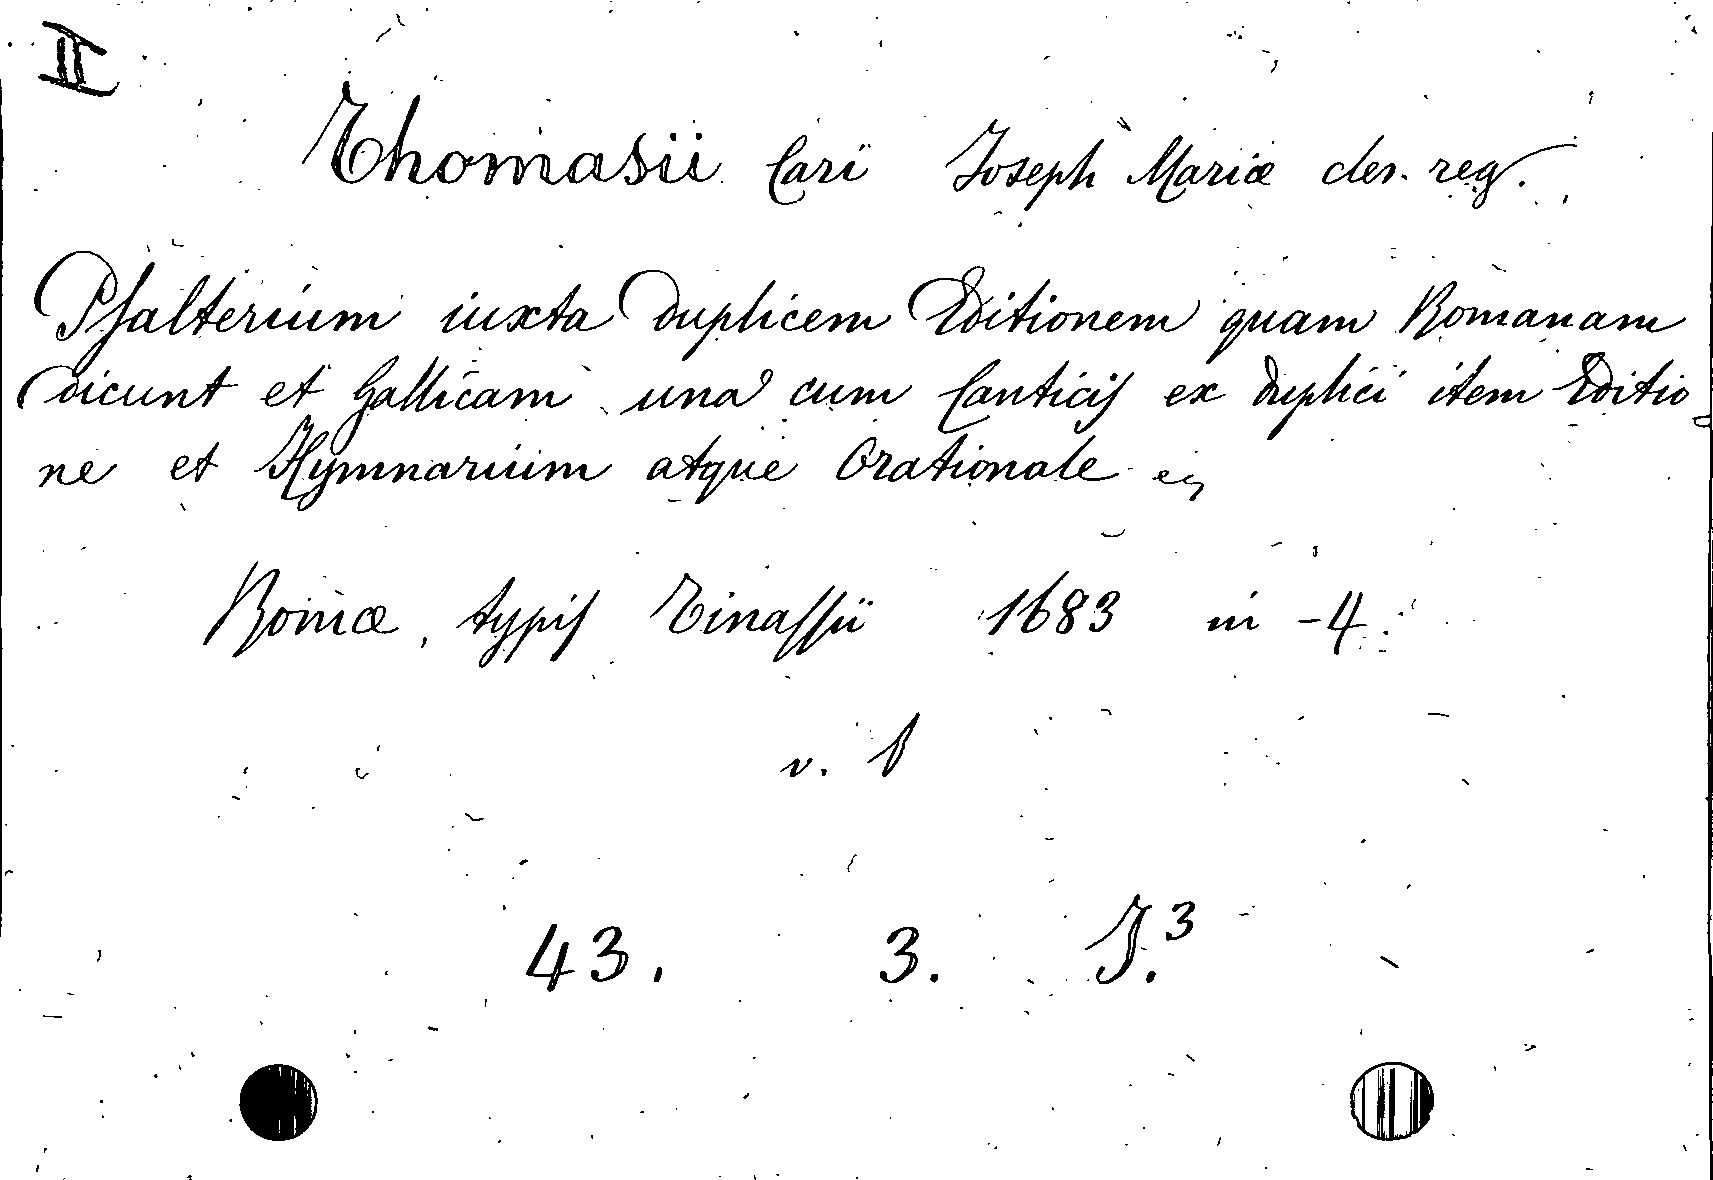 II
Thomasii Cari Joseph Mariæ cler. reg.
Psalterium iuxta duplicem Editionem quam Romanam
dicunt et Gallicam una cum Canticis ex duplici item Editio-
ne et Hymnarium atque Orationale
Romæ, typis Tinassii 1683 in -4.
v. 1
43. 3. J.3